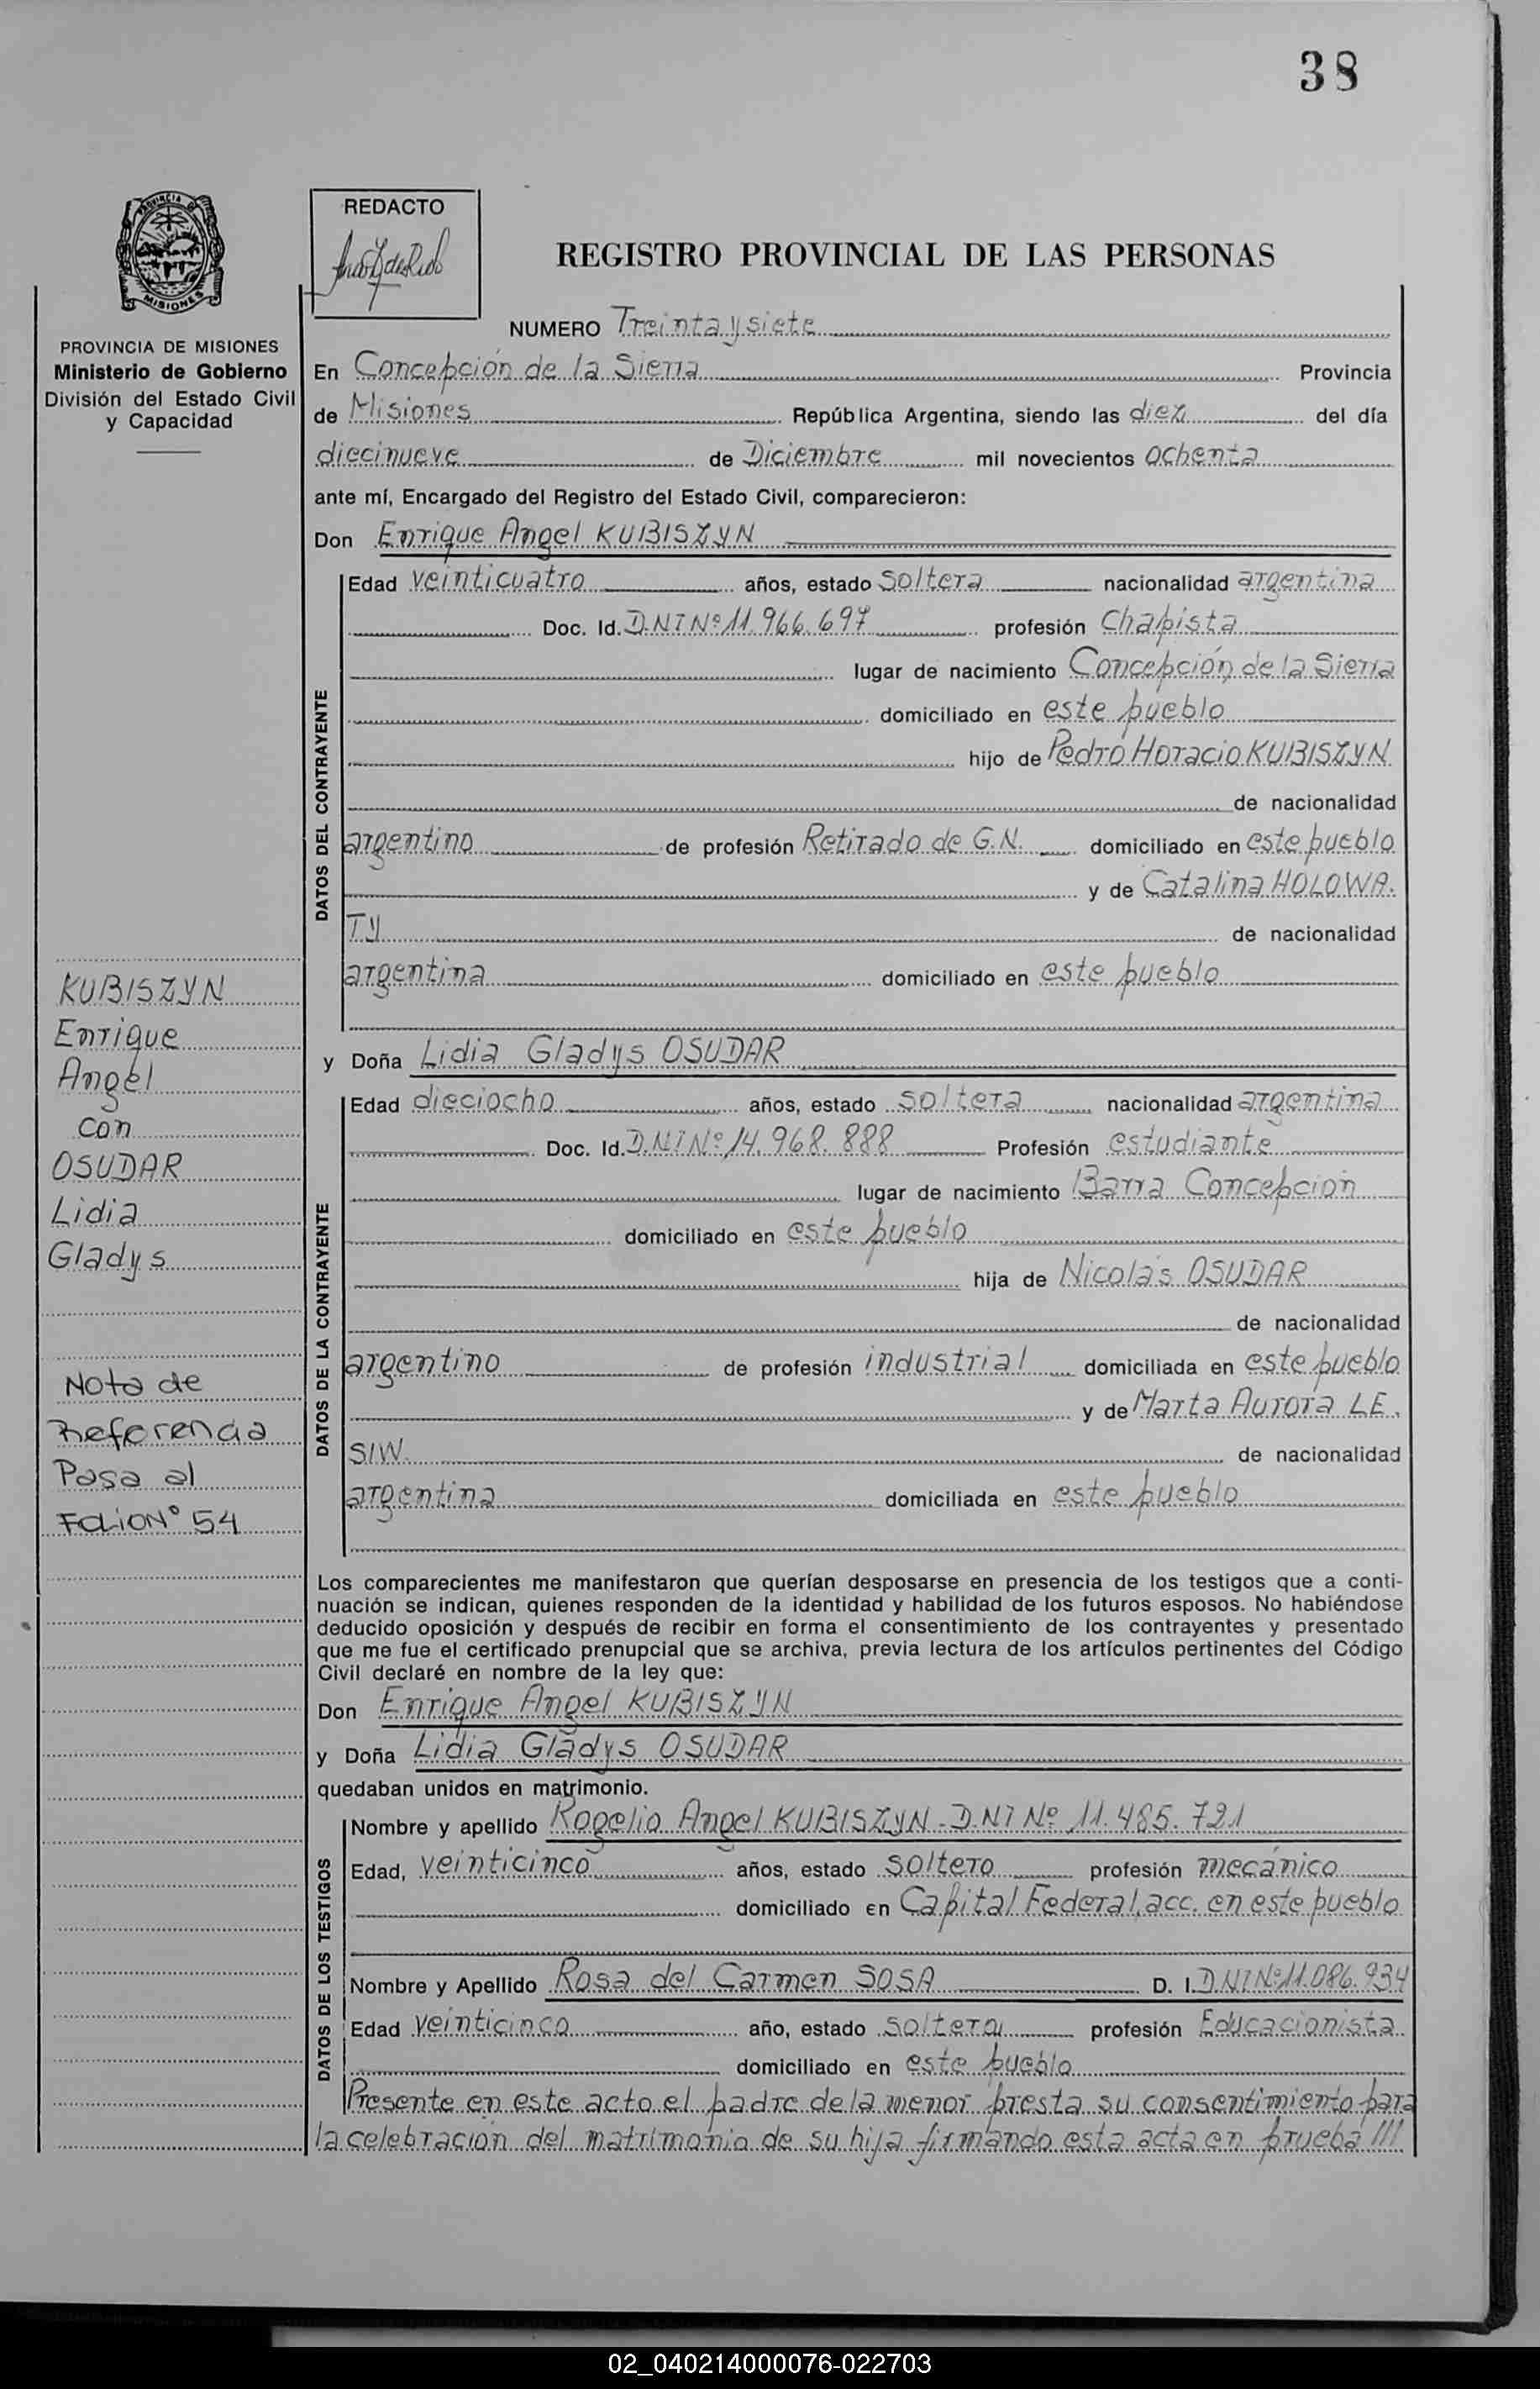 38
PROVINCIA DE
MISIONES
REDACTO
REGISTRO PROVINCIAL DE LAS PERSONAS
NUMERO Treinta y siete
PROVINCIA DE MISIONES
Ministerio de Gobierno
División del Estado Civil
y Capacidad
En Concepción de la Sierra Provincia
de Misiones República Argentina, siendo las diez del día
diecinueve de Diciembre mil novecientos ochenta
ante mí, Encargado del Registro del Estado Civil, comparecieron:
Don Enrique Angel KUBISZYN
DATOS DEL CONTRAYENTE
Edad veinticuatro años, estado soltera nacionalidad argentina
Doc. Id. D.N.I Nº 11.966.697 profesión Chapista
lugar de nacimiento Concepción de la Sierra
domiciliado en este pueblo
hijo de Pedro Horacio KUBISZYN
de nacionalidad
argentino de profesión Retirado de G.N. domiciliado en este pueblo
y de Catalina HOLOWA.
TY de nacionalidad
argentina domiciliado en este pueblo
KUBISZYN
Enrique
Angel
con
OSUDAR
Lidia
Gladys
Nota de
Referencia
Pasa al
Folio Nº 54
y Doña Lidia Gladys OSUDAR
DATOS DE LA CONTRAYENTE
Edad dieciocho años, estado soltera nacionalidad argentina
Doc. Id. D.N.I Nº 14.968.888 Profesión estudiante
lugar de nacimiento Barra Concepción
domiciliado en este pueblo
hija de Nicolás OSUDAR
de nacionalidad
argentino de profesión industrial domiciliada en este pueblo
y de Marta Aurora LE.
SIW. de nacionalidad
argentina domiciliada en este pueblo
Los comparecientes me manifestaron que querían desposarse en presencia de los testigos que a conti-
nuación se indican, quienes responden de la identidad y habilidad de los futuros esposos. No habiéndose
deducido oposición y después de recibir en forma el consentimiento de los contrayentes y presentado
que me fue el certificado prenupcial que se archiva, previa lectura de los artículos pertinentes del Código
Civil declaré en nombre de la ley que:
Don Enrique Angel KUBISZYN
y Doña Lidia Gladys OSUDAR
quedaban unidos en matrimonio.
DATOS DE LOS TESTIGOS
Nombre y apellido Rogelio Angel KUBISZYN - D.N.I Nº 11.485.721
Edad, veinticinco años, estado soltero profesión mecánico
domiciliado en Capital Federal, acc. en este pueblo
Nombre y Apellido Rosa del Carmen SOSA D. I. D.N.I Nº 11.086.934
Edad veinticinco año, estado soltera profesión Educacionista
domiciliado en este pueblo
Presente en este acto el padre de la menor presta su consentimiento para
la celebración del matrimonio de su hija firmando esta acta en prueba ///
02_040214000076-022703